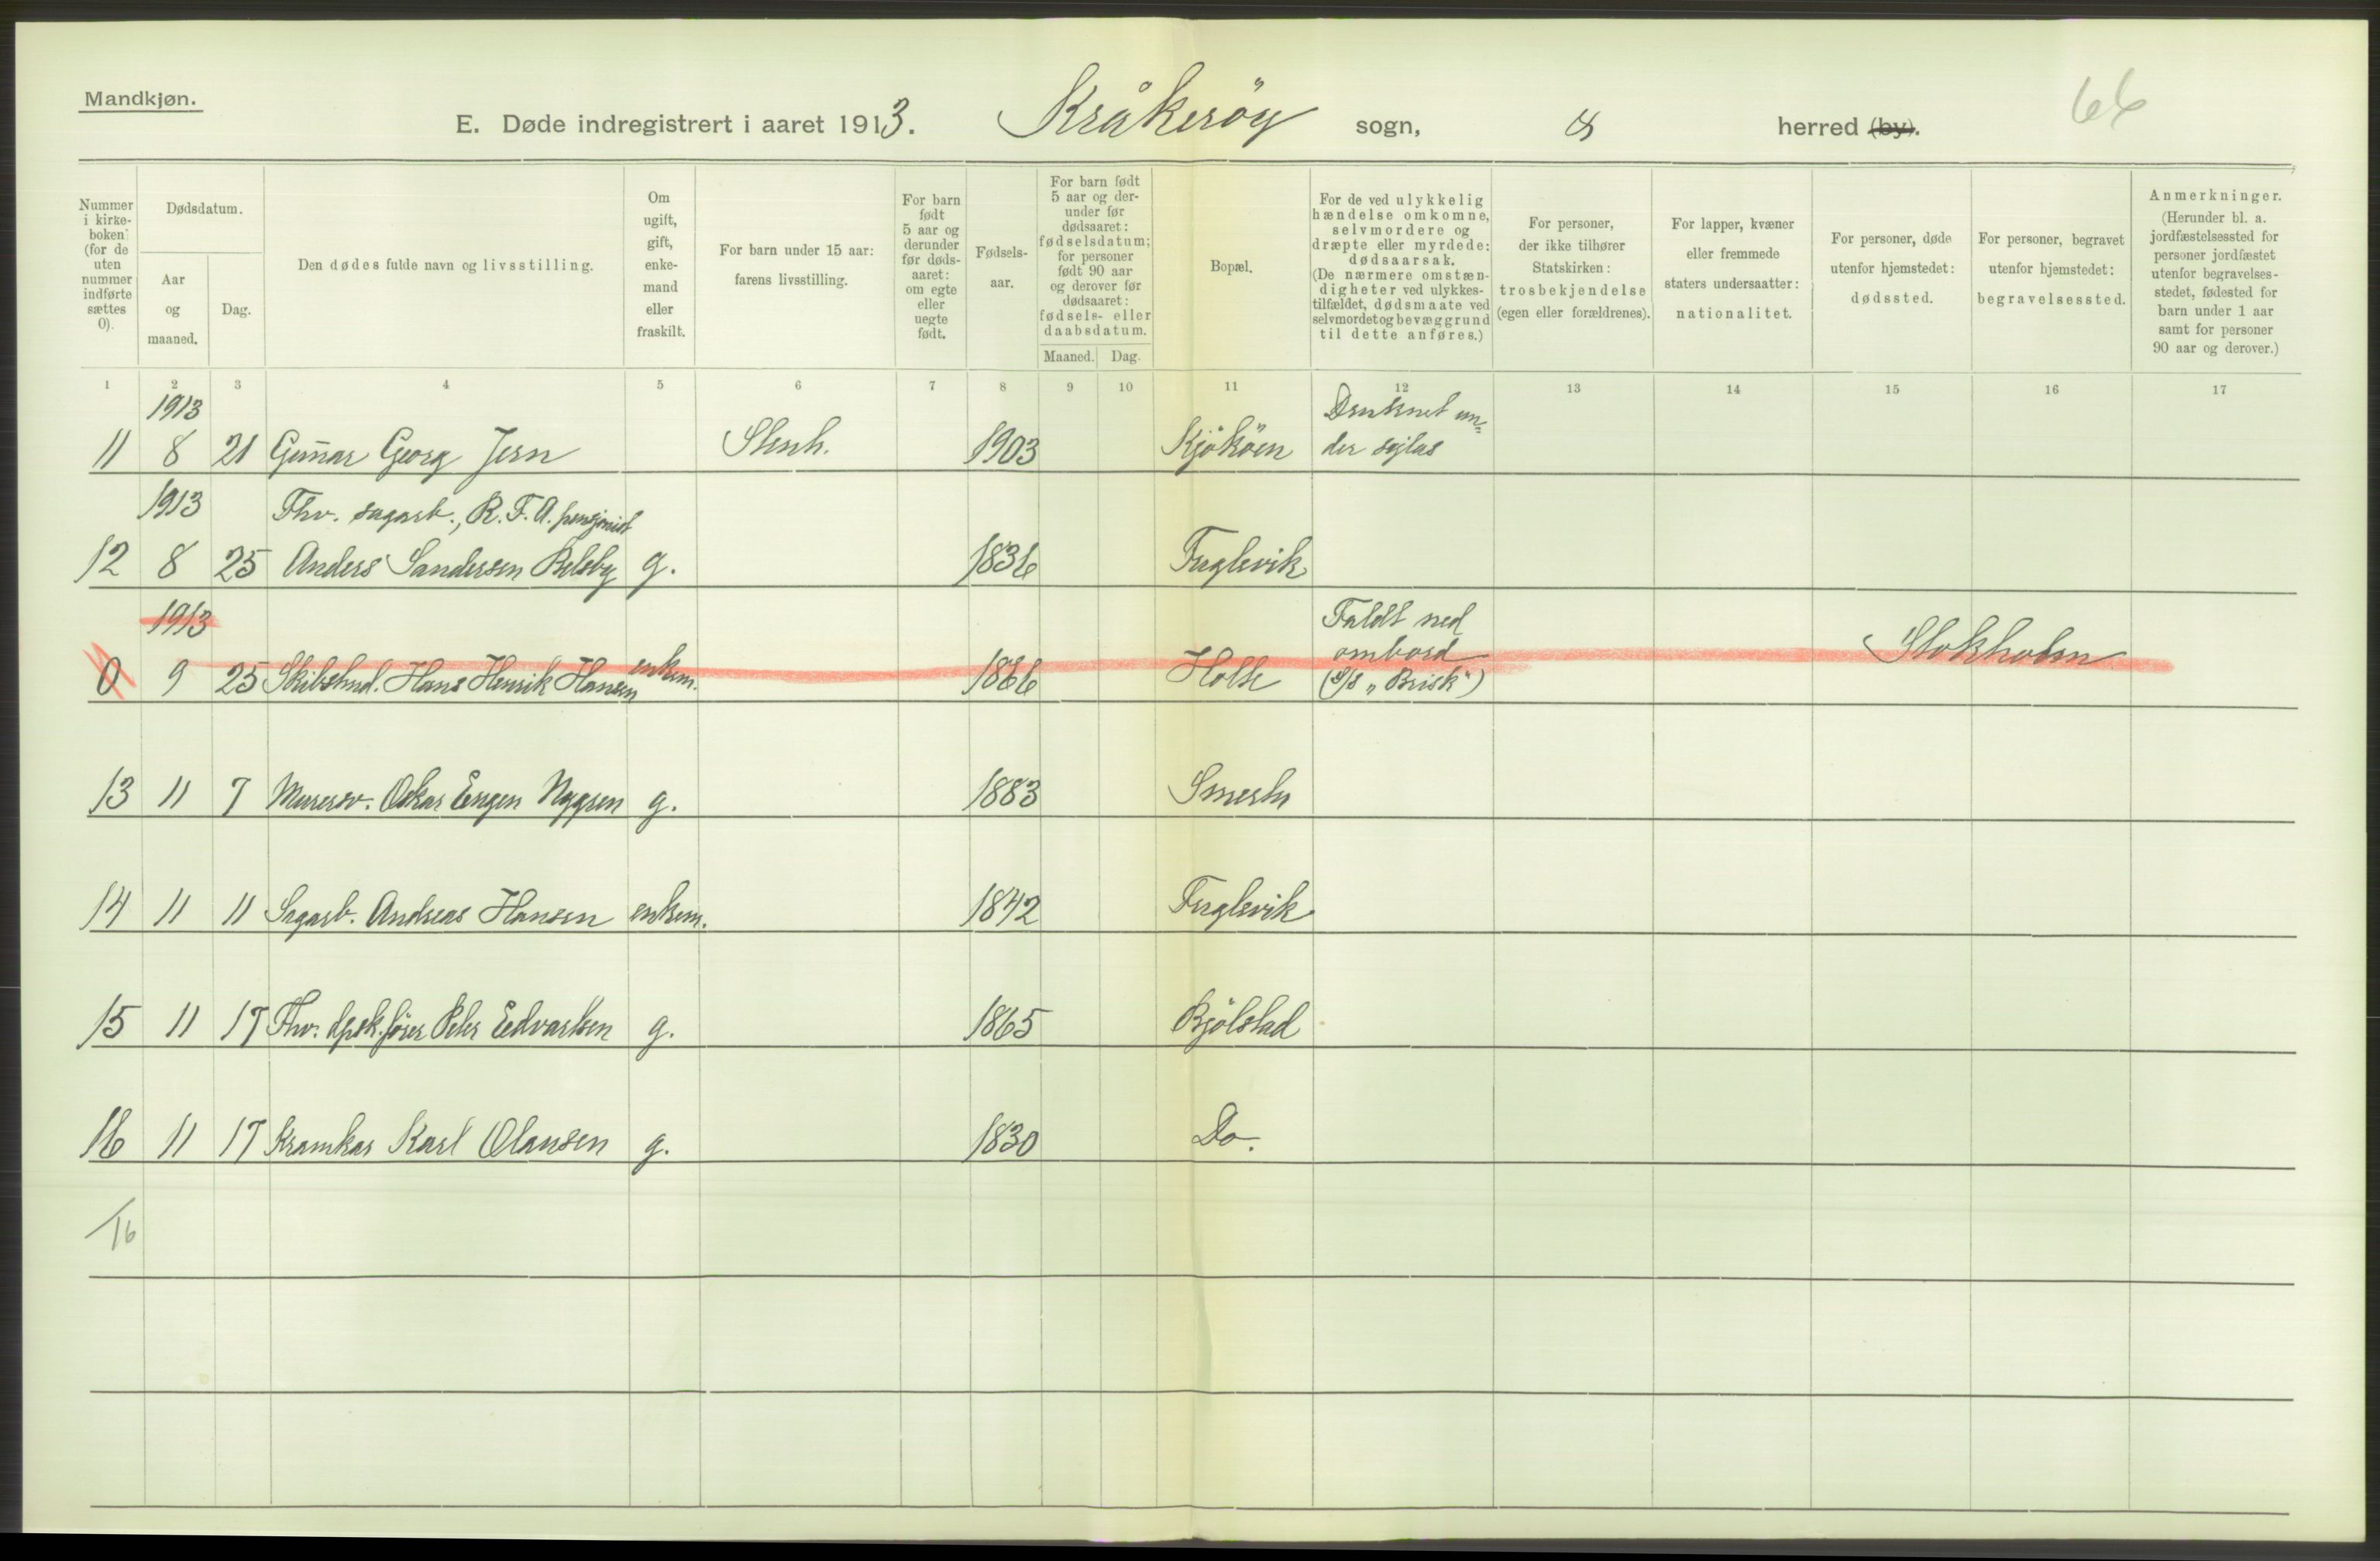 Mandkjøn.
E. Døde indregistrert i aaret 1913. Kråkeröy sogn, herred (by).
66
Nummer i kirkeboken (for de uten nummer indførte sættes 0).
Dødsdatum.
Aar og maaned.
Dag.
Den dødes fulde navn og livsstilling.
Om ugift, gift, enkemand eller fraskilt.
For barn under 15 aar: farens livsstilling.
For barn født 5 aar og derunder før dødsaaret: om egte eller uegte født.
Fødselsaar.
For barn født 5 aar og derunder før dødsaaret: fødselsdatum; for personer født 90 aar og derover før dødsaaret: fødsels- eller daabsdatum.
Maaned. Dag.
Bopæl.
For de ved ulykkelig hændelse omkomne, selvmordere og dræpte eller myrdede: dødsaarsak. (De nærmere omstændigheter ved ulykkestilfældet, dødsmaate ved selvmordet og bevæggrund til dette anføres.)
For personer, der ikke tilhører Statskirken: trosbekjendelse (egen eller forældrenes).
For lapper, kvæner eller fremmede staters undersaatter: nationalitet.
For personer, døde utenfor hjemstedet: dødssted.
For personer, begravet utenfor hjemstedet: begravelsessted.
Anmerkninger. (Herunder bl. a. jordfæstelsessted for personer jordfæstet utenfor begravelsesstedet, fødested for barn under 1 aar samt for personer 90 aar og derover.)
1 2 3 4 5 6 7 8 9 10 11 12 13 14 15 16 17
1913 Druknet un=
11 8 21 Gunnar Georg Jern Stenh. 1903 Kjököen der sejlas
1913 Fhv. sagarb., R.F.A. pensjonist
12 8 25 Anders Sandersen Relsby g. 1836 Fuglevik
1913 Faldt ned
ombord Stokholm
0 9 25 Skibstmd. Hans Henrik Hansen enkem. 1866 Holte (S/S „Brisk")
13 11 7 Murersv. Oskar Eugen Nygren g. 1883
14 11 11 Sagarb. Andreas Hansen enkem. 1842 Fuglevik
15 11 17 Fhv. dpsk.fører Peter Edvartsen g. 1865 Bjölstad
16 11 17 Kramkar Karl Olausen g. 1830 Do.
16